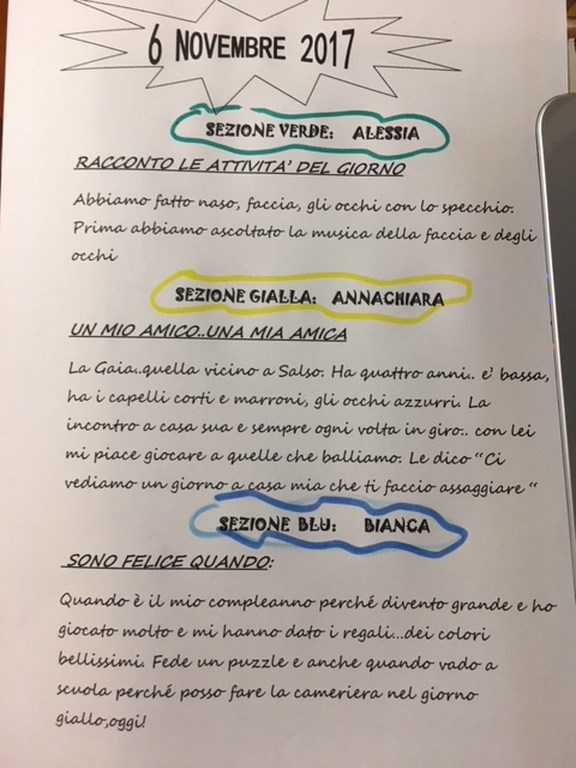 6 NOVEMBRE 2017
SEZIONE VERDE: ALESSIA
RACCONTO LE ATTIVITA' DEL GIORNO
Abbiamo fatto naso, faccia, gli occhi con lo specchio.
Prima abbiamo ascoltato la musica della faccia e degli
occhi
SEZIONE GIALLA: ANNACHIARA
UN MIO AMICO..UNA MIA AMICA
La Gaia..quella vicino a Salso. Ha quattro anni.. e' bassa,
ha i capelli corti e marroni, gli occhi azzurri. La
incontro a casa sua e sempre ogni volta in giro.. con lei
mi piace giocare a quelle che balliamo. Le dico "Ci
vediamo un giorno a casa mia che ti faccio assaggiare "
SEZIONE BLU: BIANCA
SONO FELICE QUANDO:
Quando è il mio compleanno perché divento grande e ho
giocato molto e mi hanno dato i regali...dei colori
bellissimi. Fede un puzzle e anche quando vado a
scuola perché posso fare la cameriera nel giorno
giallo,oggi!